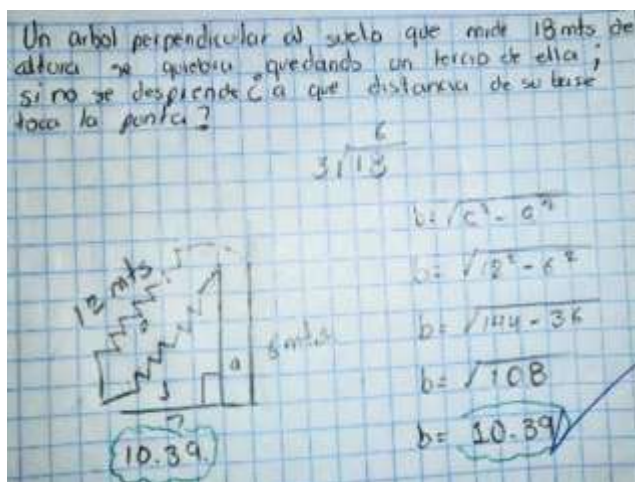 Un arbol perpendicular al suelo que mide 18 mts de
altura se quiebra quedando un tercio de ella;
si no se desprende ¿a que distancia de su base
toca la punta?
6
3√18
b=√c²-a²
b=√12²-6²
b=√144-36
b=√108
b= 10.39
12 mts
6 mts
a
10.39